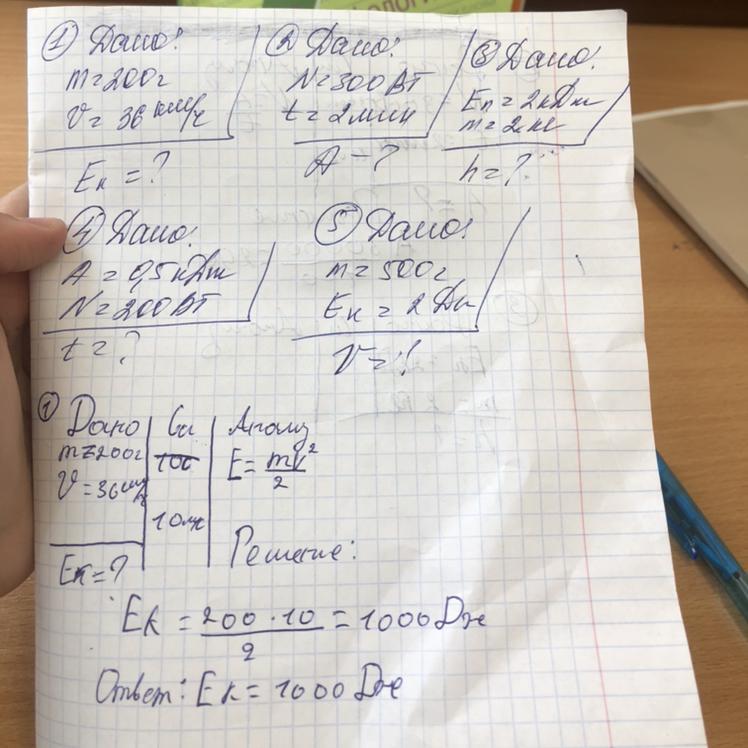 ① Дано:
m = 200г
V = 36 км/ч
Eк = ?
② Дано:
N = 300 ВТ
t = 2 мин
A - ?
③ Дано:
Eп = 2 кДж
m = 2 кг
h = ?
④ Дано:
A = 0,5 кДж
N = 200 ВТ
t = ?
⑤ Дано:
m = 500г
Eк = 2 Дж
V = ?
① Дано
m = 200г
V = 36 км/ч
Eк = ?
Си
10 м/с
Анализ
E = mV²/2
Решение:
Eк = 200 · 10 / 2 = 1000 Дж
Ответ: Eк = 1000 Дж